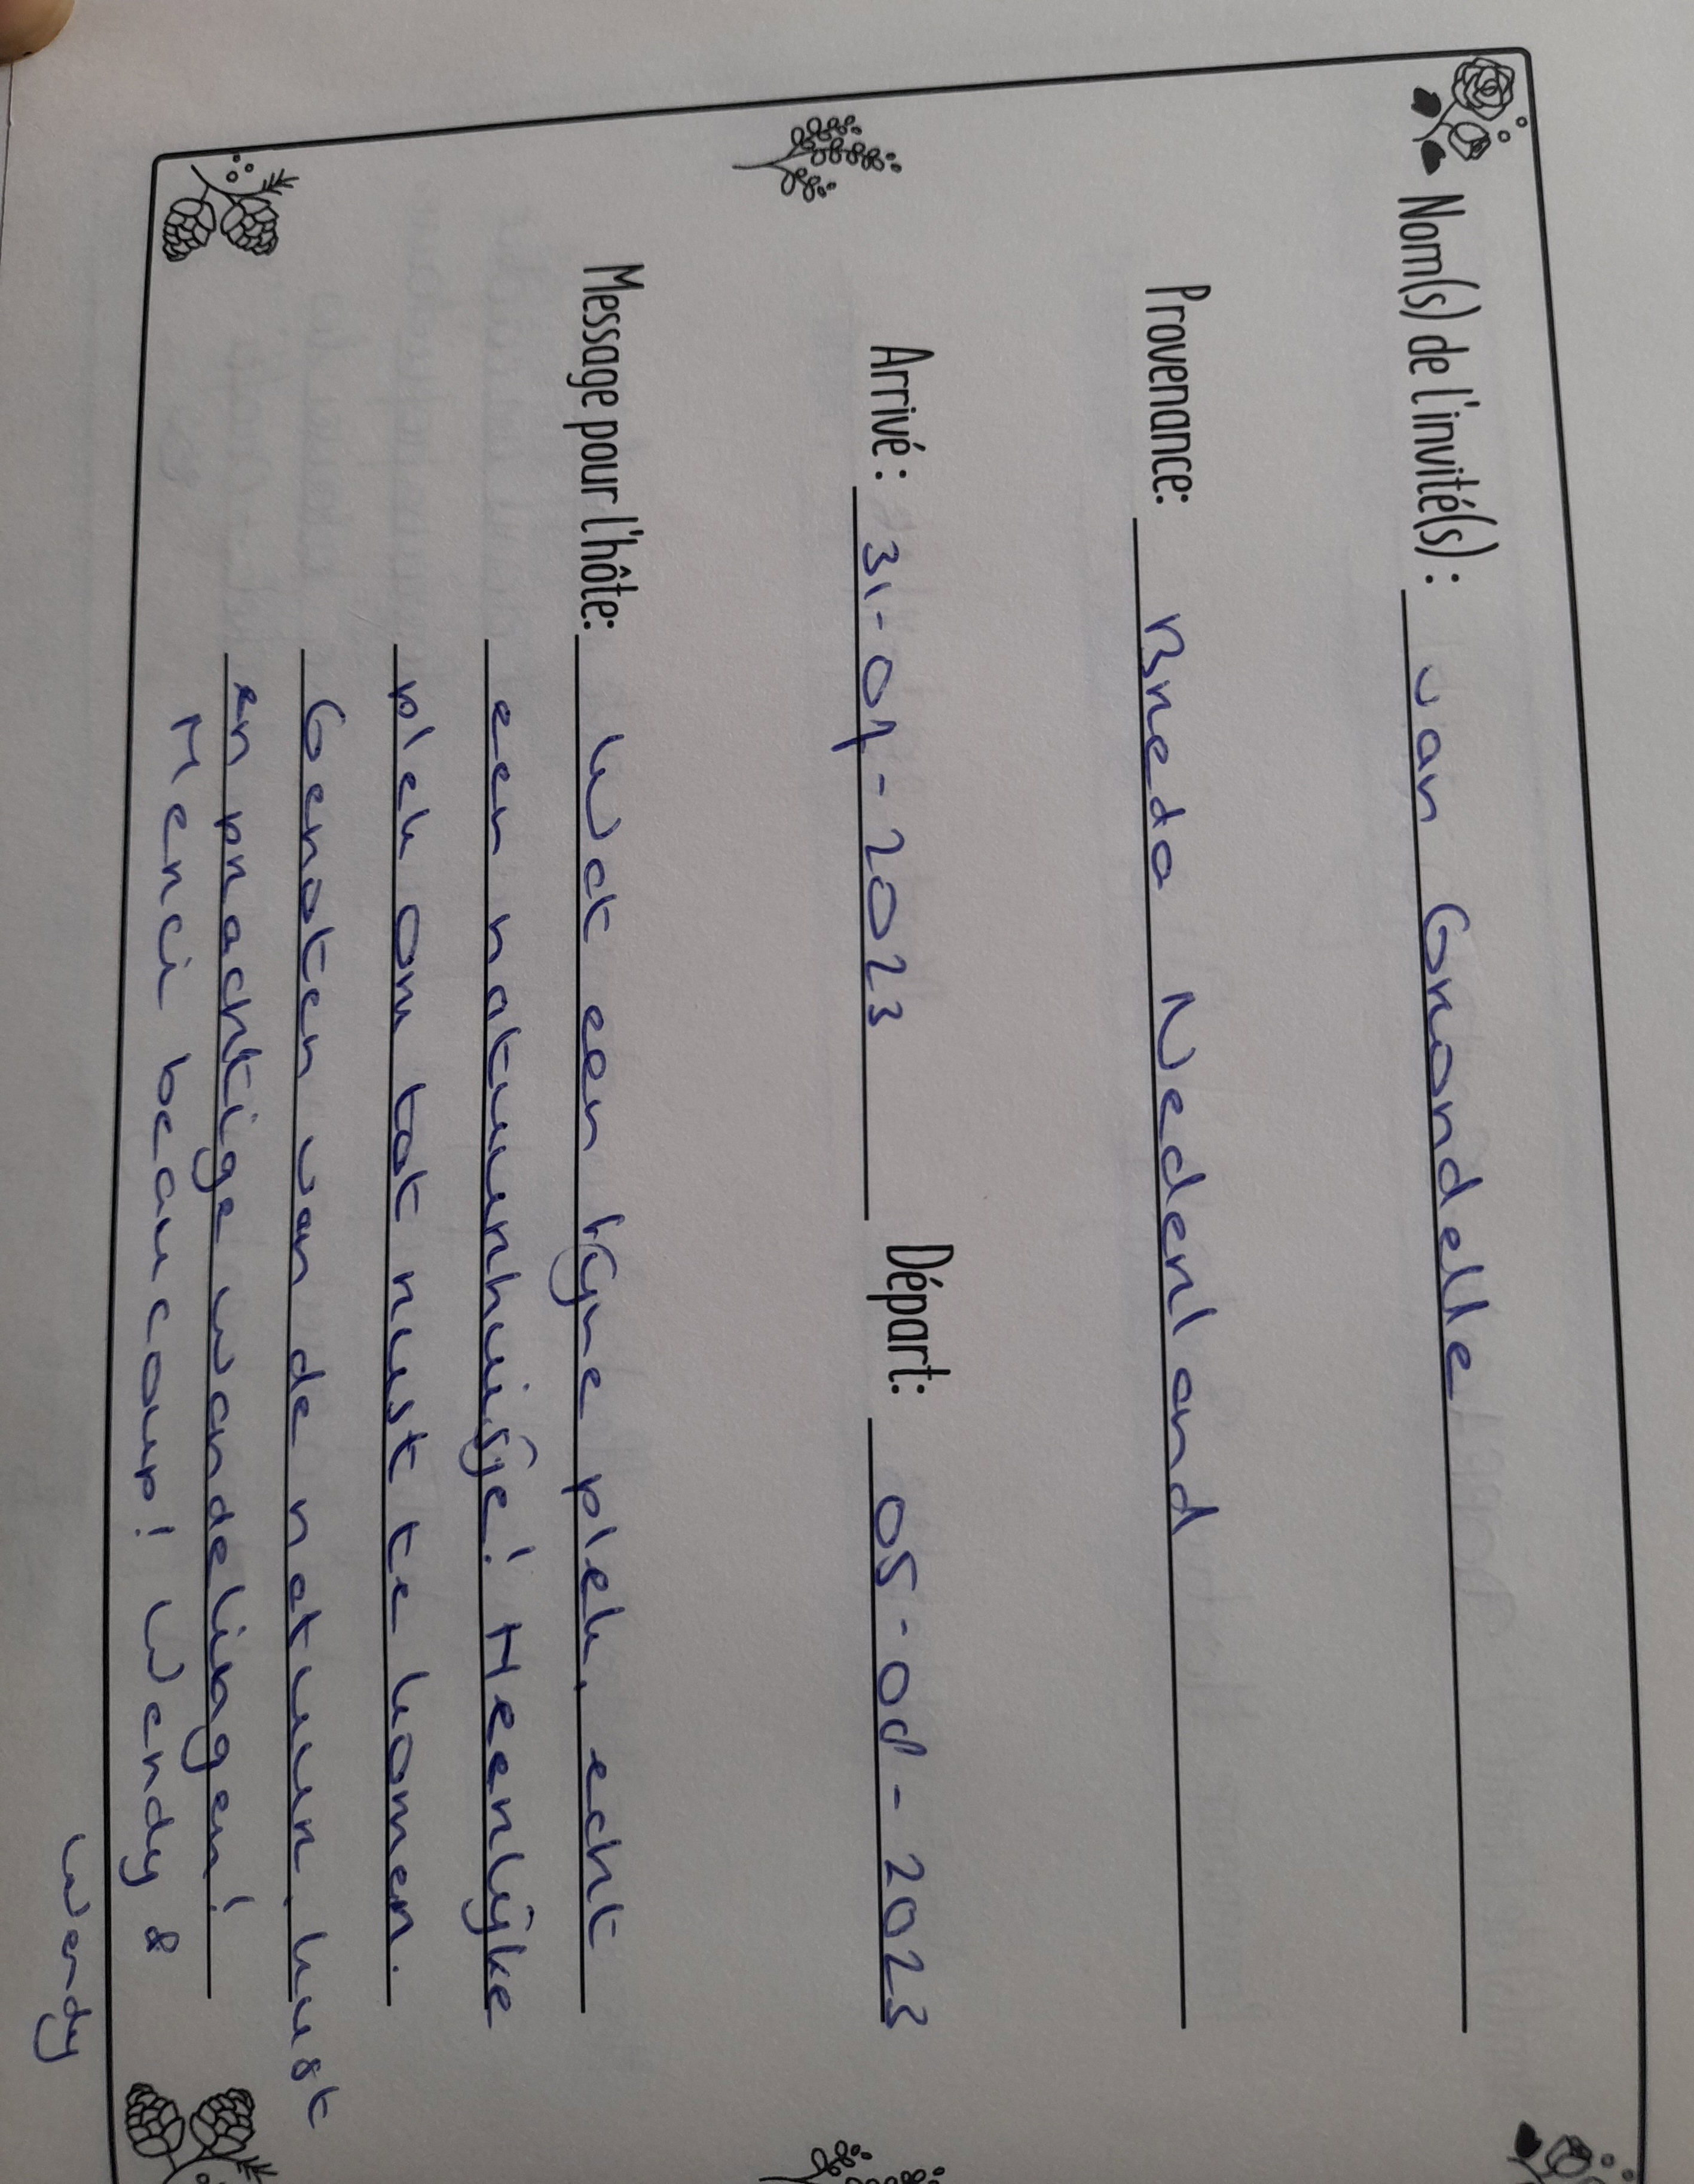 Nom(s) de l'invité(s) : van Grondelle
Provenance: Breda Nederland
Arrivé : 31-07-2023 Départ: 05-08-2023
Message pour l'hôte: Wat een fijne plek, echt
een natuurhuisje! Heerlijke
plek om tot rust te komen.
Genoten van de natuur, kust
en prachtige wandelingen!
Merci beaucoup! Wendy &
Wendy